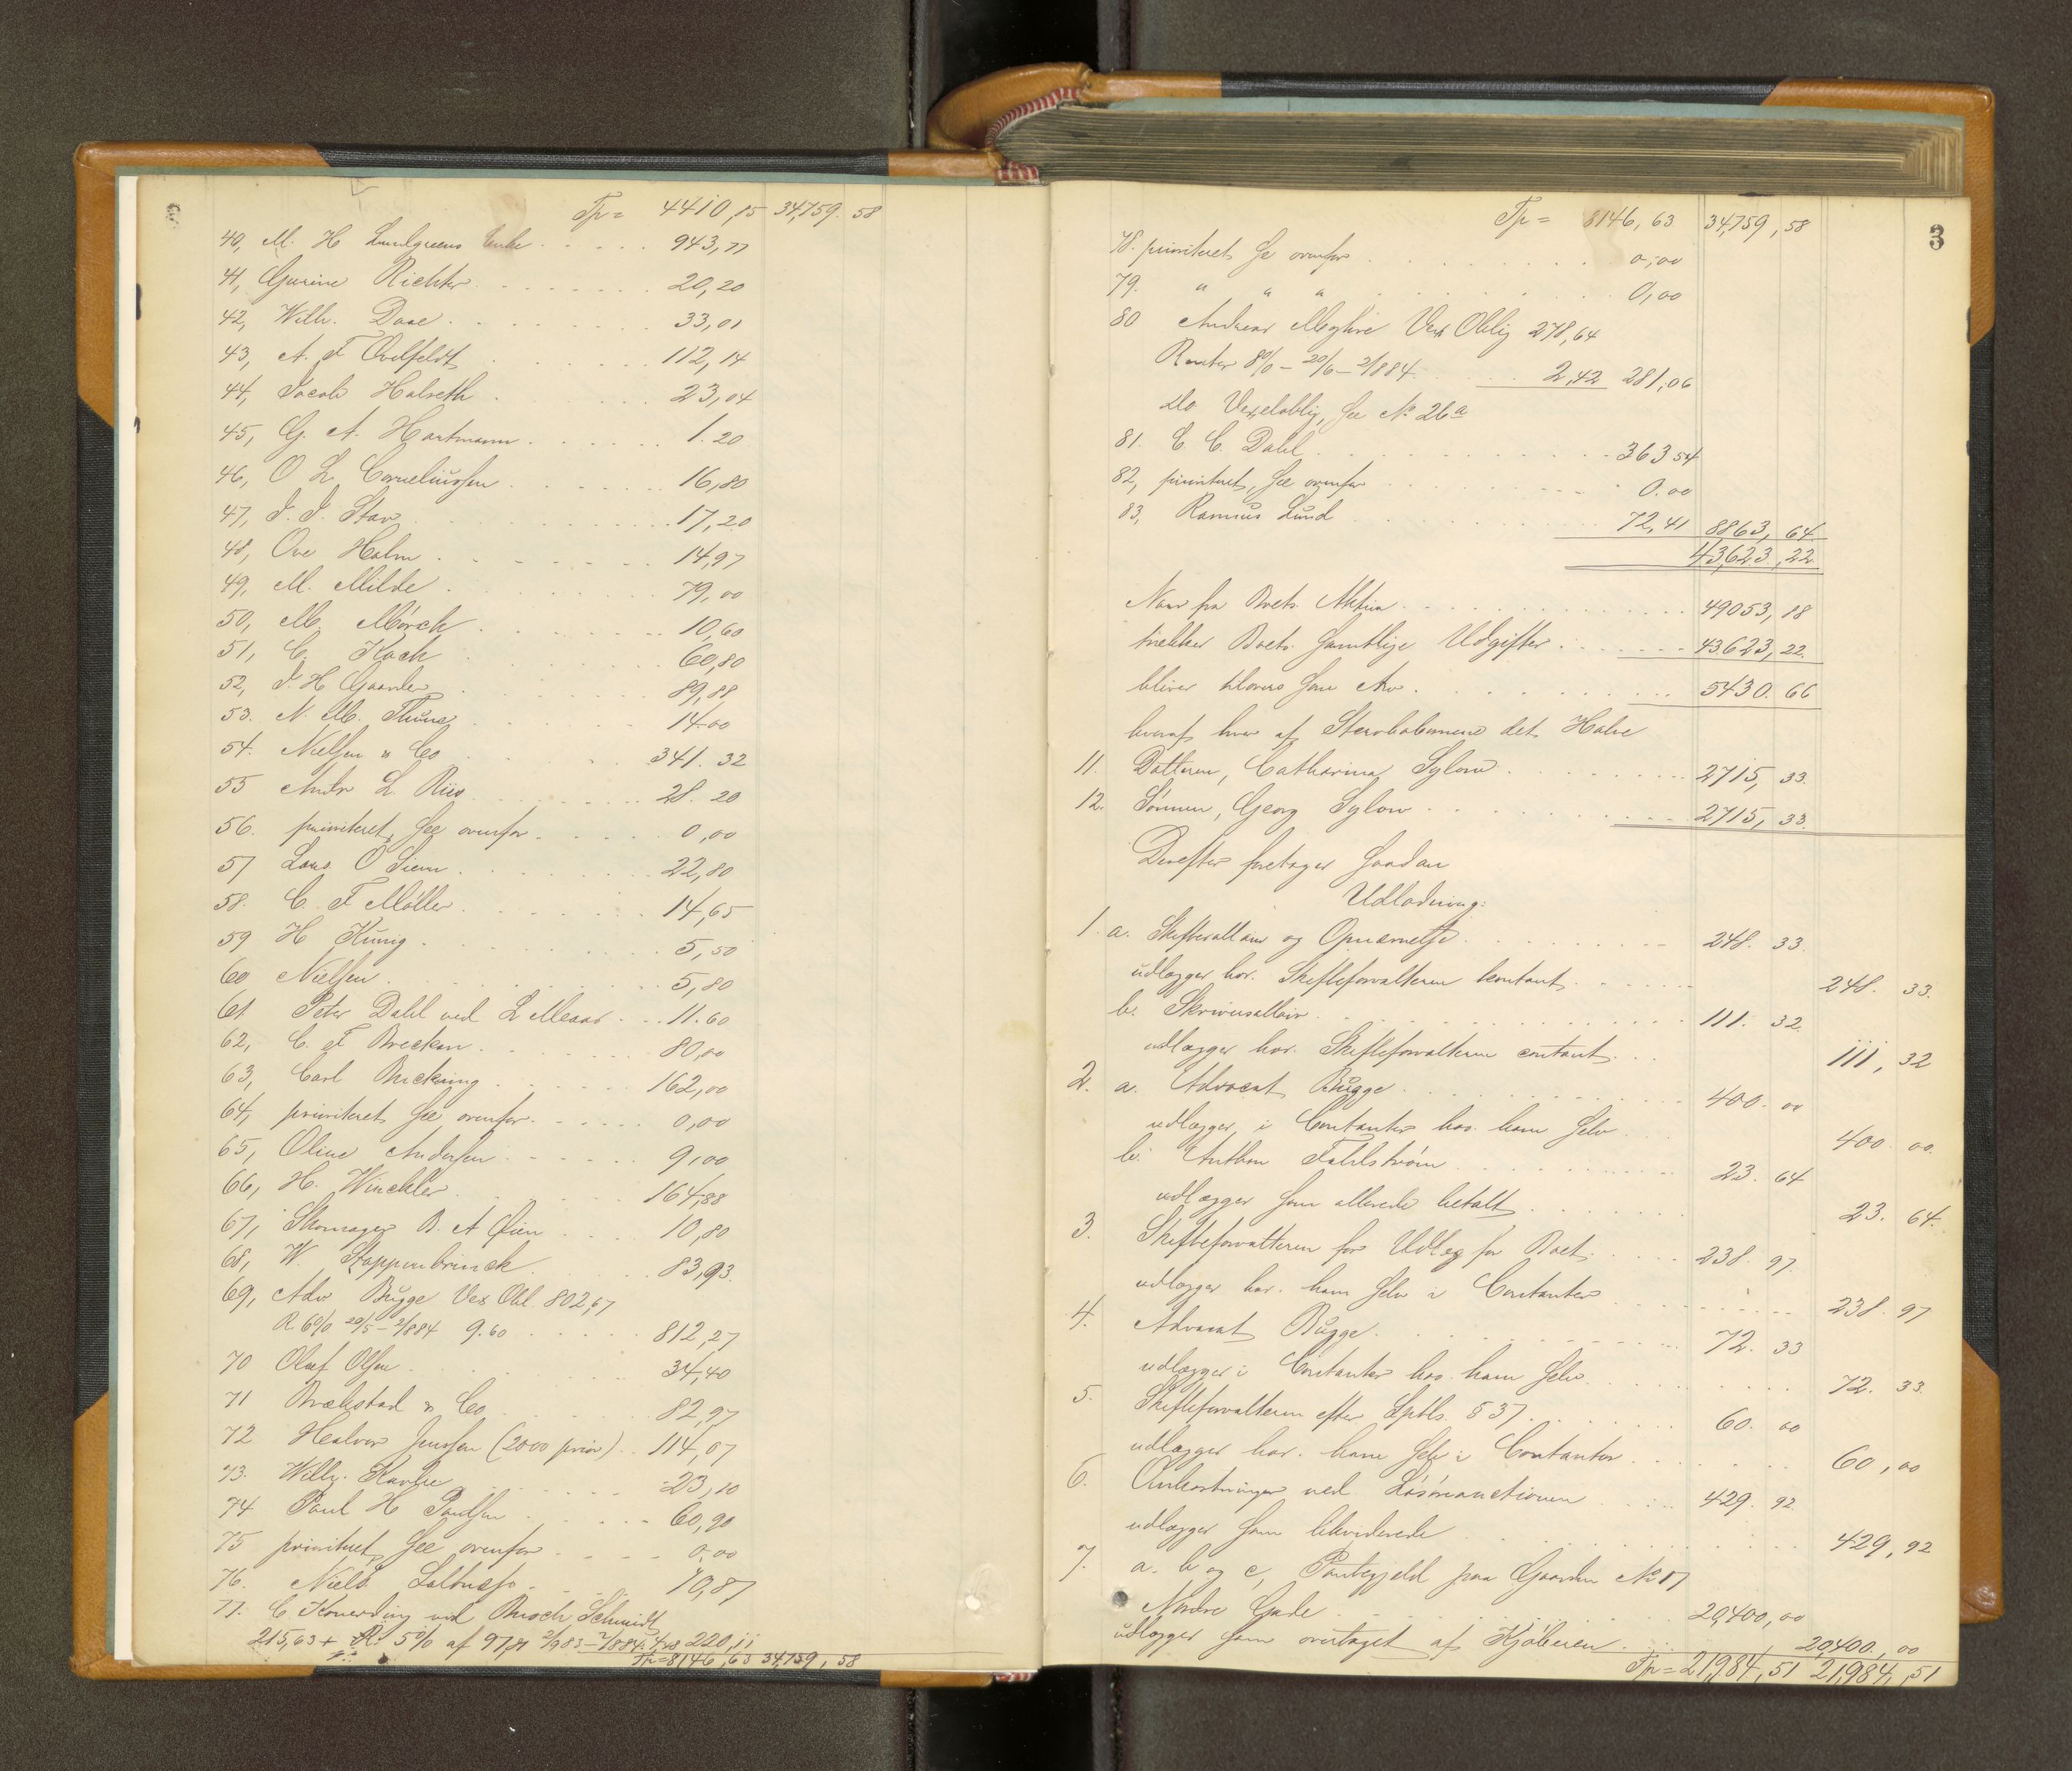 Tp = 4410,15 34,759. 58
40, M. H Lundgreens Enke 943,77
41, Gurine Richter 20,20
42, Wilh. Daae 33,01
43, A. F Ovelfeldt 112,14
44, Jacob Halseth 23,04
45, G. A. Hartmann 1.20
46, O L Corneliussen 16,80
47, J. J. Stav 17,20
48, Ove Holm 14,97
49, M. Milde 79,00
50, M. Mørch 10,60
51, C. Koch 60,80
52, J. H Gaarder 89,88
53. N. M. Thune 14.00
54. Nielsen & Co 341. 32
55 Andr L. Riis 28. 20
56. prioriteret, see ovenfor 0,00
57 Lars O Siem 22,80
58. C. F Møller 14,65
59 H König 5,50
60 Nielsen 5,80
61 Peter Dahl ved L 11.60
62, C. F Brockan 80,00
63, Carl 162,00
64, prioriteret see ovenfor 0,00
65, Oline Andersen 9,00
66, H. Winchler 164,88
67, Skomager B. A Øien 10,80
68, W. Stoppenbrinck 83,93.
69, Adv Bugge Vex Obl. 802,67
R 6% 20/5 - 2/884 9.60 812,27
70 Oluf Olsen 34,40
71 Brækstad & Co 82,97
72 Halvor Jenssen (2000 prior) 114,07
73. Willy. 23,10
74 Paul H Paulsen 60,90
75 prioriteret, see ovenfor 0,00
76. Niels 70,87
77. C ved Broch Schmidt
215,63 + R. 5% af 97,81 2/983 - 2/884. 4,48 220,11
Tp = 8146,63 34,759, 58
3
Tp = 8146,63 34,759, 58
78. prioriteret see ovenfor 0,00
79. " " " 0,00
80 Andreas Vex Oblig 278,64
Renter 8% - 20/6 - 2/884 2,42 281,06
do Vexeloblig, see No 26a
81. C. C. Dahl 363 54
82, prioriteret, see ovenfor 0.00
83, Rasmus Lund 72,41 8863, 64
43,623, 22
Naar fra Boets Aktiva 49053, 18
trækkes Boets samtlige Udgifter 43623, 22.
bliver tilovers som Arv 5430. 66
hvoraf hver af Stervbobørnene det Halve
11. Datteren, Catharina Sylow 2715, 33.
12. Sønnen, Georg Sylow 2715, 33.
Derefter foretages saadan
Udlodning:
1. a. Skiftesallair og Opnævnelse 248. 33.
udlægges hos Skifteforvalteren kontant 248. 33.
b. Skriversallair 111. 32
udlægges hos Skifteforvalteren contant 111, 32
2. a. Advocat Bugge 400. 00
udlægges i Contanter hos ham selv 400 00.
b. Anthon Fahlstrøm 23. 64
udlægges som allerede betalt 23. 64.
3. Skifteforvalteren for Udlæg for Boet 238. 97.
udlægges hos ham selv i Contanter 238. 97
4. Advocat Bugge 72. 33
udlægges i Contanter hos ham selv 72. 33.
5. Skifteforvalteren efter Sptls. § 37 60. 00
udlægges hos ham selv i Contanter 60, 00
6. Omkostninger ved Løsøreauctionen 429. 92
udlægges som likviderede 429, 92
7. a. b og c, Pantegjeld paa Gaarden No 17
Nordre Gade 20,400,00
udlægges som overtaget af Kjøberen 20400, 00
Tp = 21,984, 51 21,984, 51